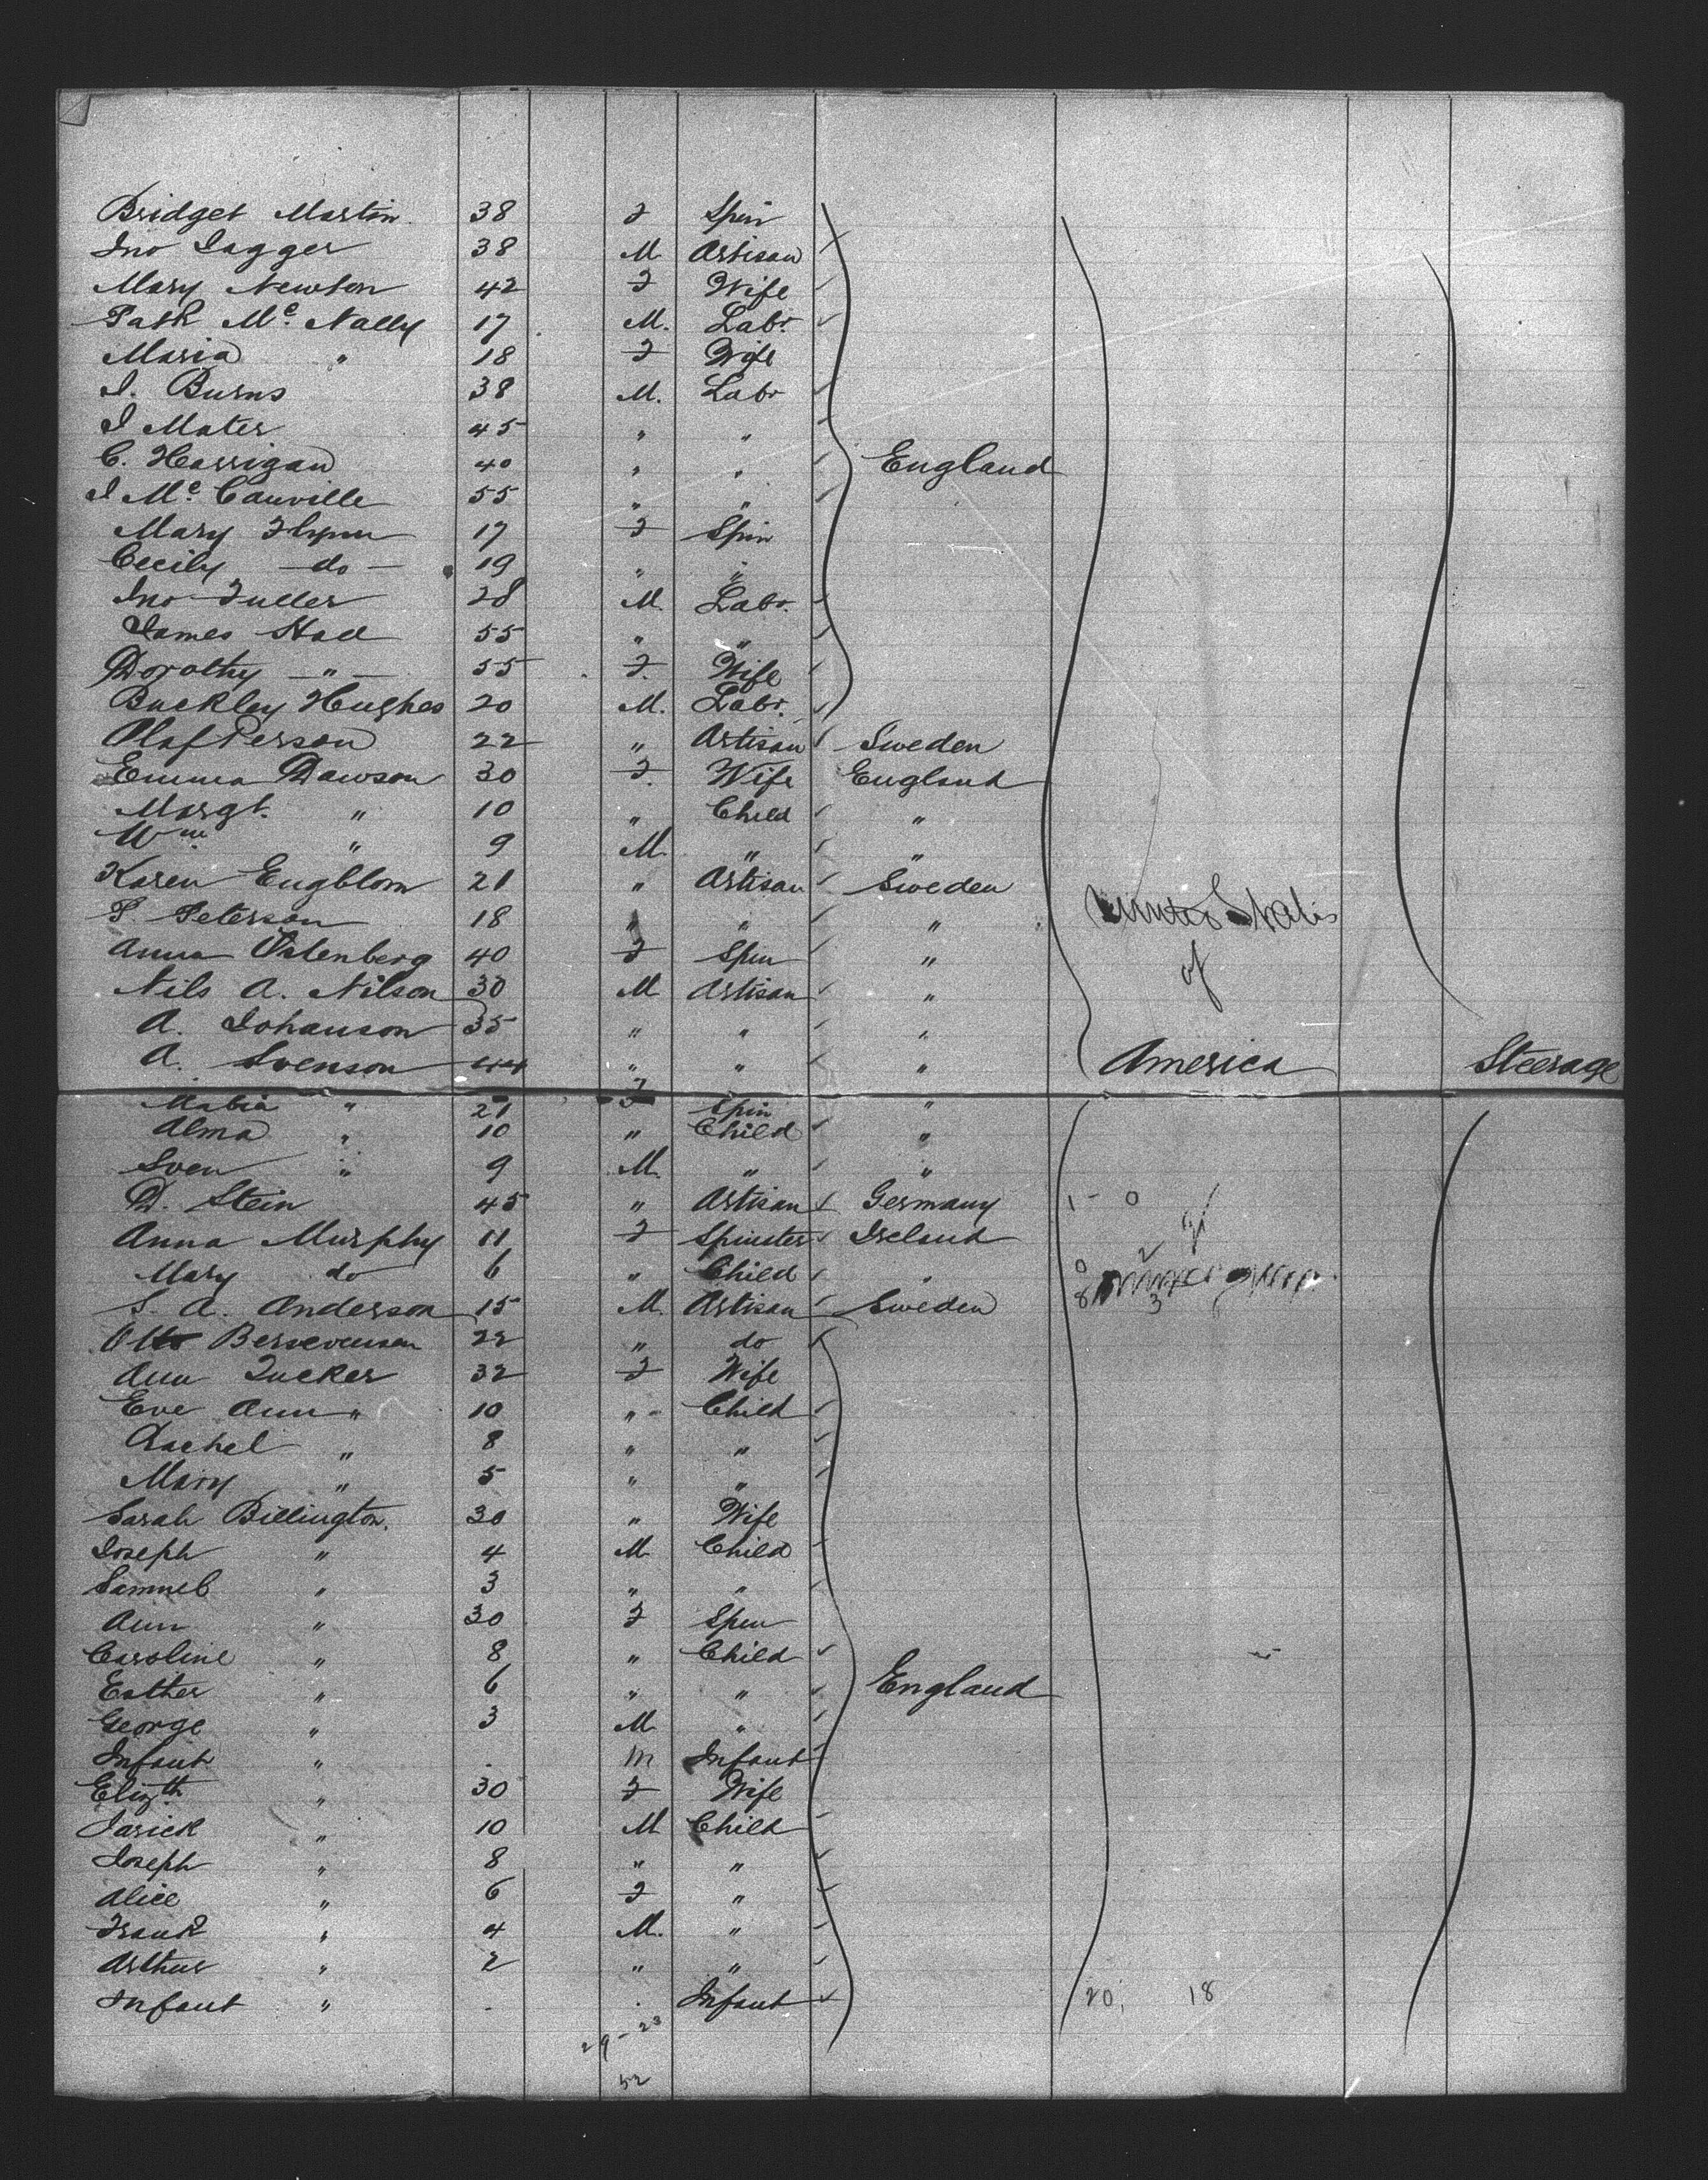 Bridget Martin 38 F Spin
Jno Jagger 38 M Artisan
Mary Newton 42 F Wife
Patk Mc Nally 17 M. Labr.
Maria " 18 F Wife
J. Burns 38 M. Labr
J Mater 45 " "
C. Harrigan 40 " " England
J Mc Canville 55 " "
Mary Flynn 17 F Spin
Cecily do 19 " "
Jno Fuller 28 M. Labr.
James Hall 55 " "
Dorothy " 55 F. Wife
Buckley Hughes 20 M. Labr.
Olaf Person 22 " Artisan Sweden
Emma Dawson 30 F. Wife England
Margt. " 10 " Child "
Wm. " 9 M. " "
Karen Engblom 21 " Artisan Sweden
P. Peterson 18 " " " United States
Anna Ostenberg 40 F Spin " of
Nils A. Nilson 30 M Artisan "
A. Johanson 35 " " "
A. Svenson 44 " " " America Steerage
Maria " 21 F Spin "
Alma " 10 " Child "
Sven " 9 M. " "
D. Stein 45 " Artisan Germany 1 - 0
Anna Murphy 11 F Spinster Ireland
Mary do 6 " Child "
S. A. Anderson 15 M. Artisan Sweden
Otto 22 " do
Ann Tucker 32 F Wife
Eve Ann " 10 " Child
Rachel " 8 " "
Mary " 5 " "
Sarah Billington. 30 " Wife
Joseph " 4 M Child
Samuel " 3 " "
Ann " 30 F Spin
Caroline " 8 " Child
Esther " 6 " " England
George " 3 M "
Infant " . M Infant
Elizth " 30 F Wife
Jarick " 10 M Child
Joseph " 8 " "
Alice " 6 F "
Frank " 4 M. "
Arthur " 2 " "
Infant " . . Infant 20, 18
29 - 23
52